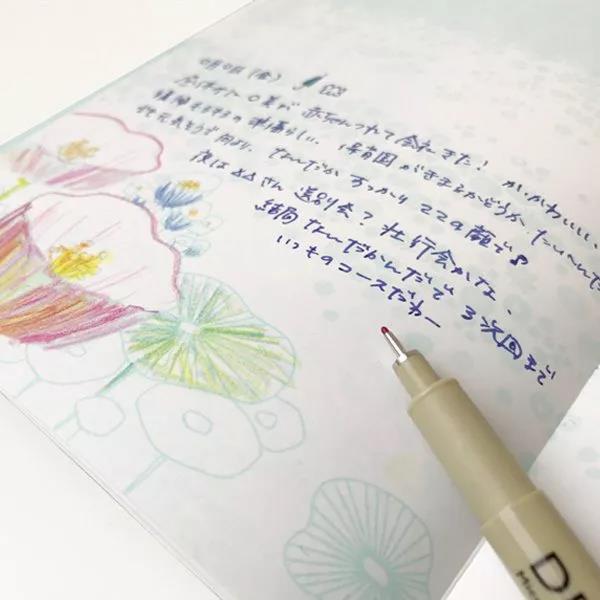 ○月○日(金)
○美が 赤ちゃんつれて 会社きた! かわいい、
保育園がきまるかどうか、たいへんだ
何より、なんだか すっかり ママの顔で
夜は△△さん 送別会?壮行会かな、
結局なんだかんだで 3次回まで
いつものコースだわー